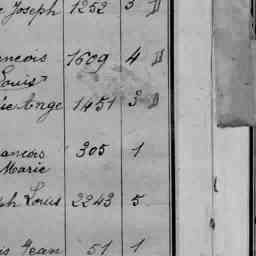 Joseph 1252 3 D
ancois 1609 4 D
Louis
ie Ange 1451 3 D
rancois 305 1
Marie
ph Louis 2243 5
is Jean 51 1